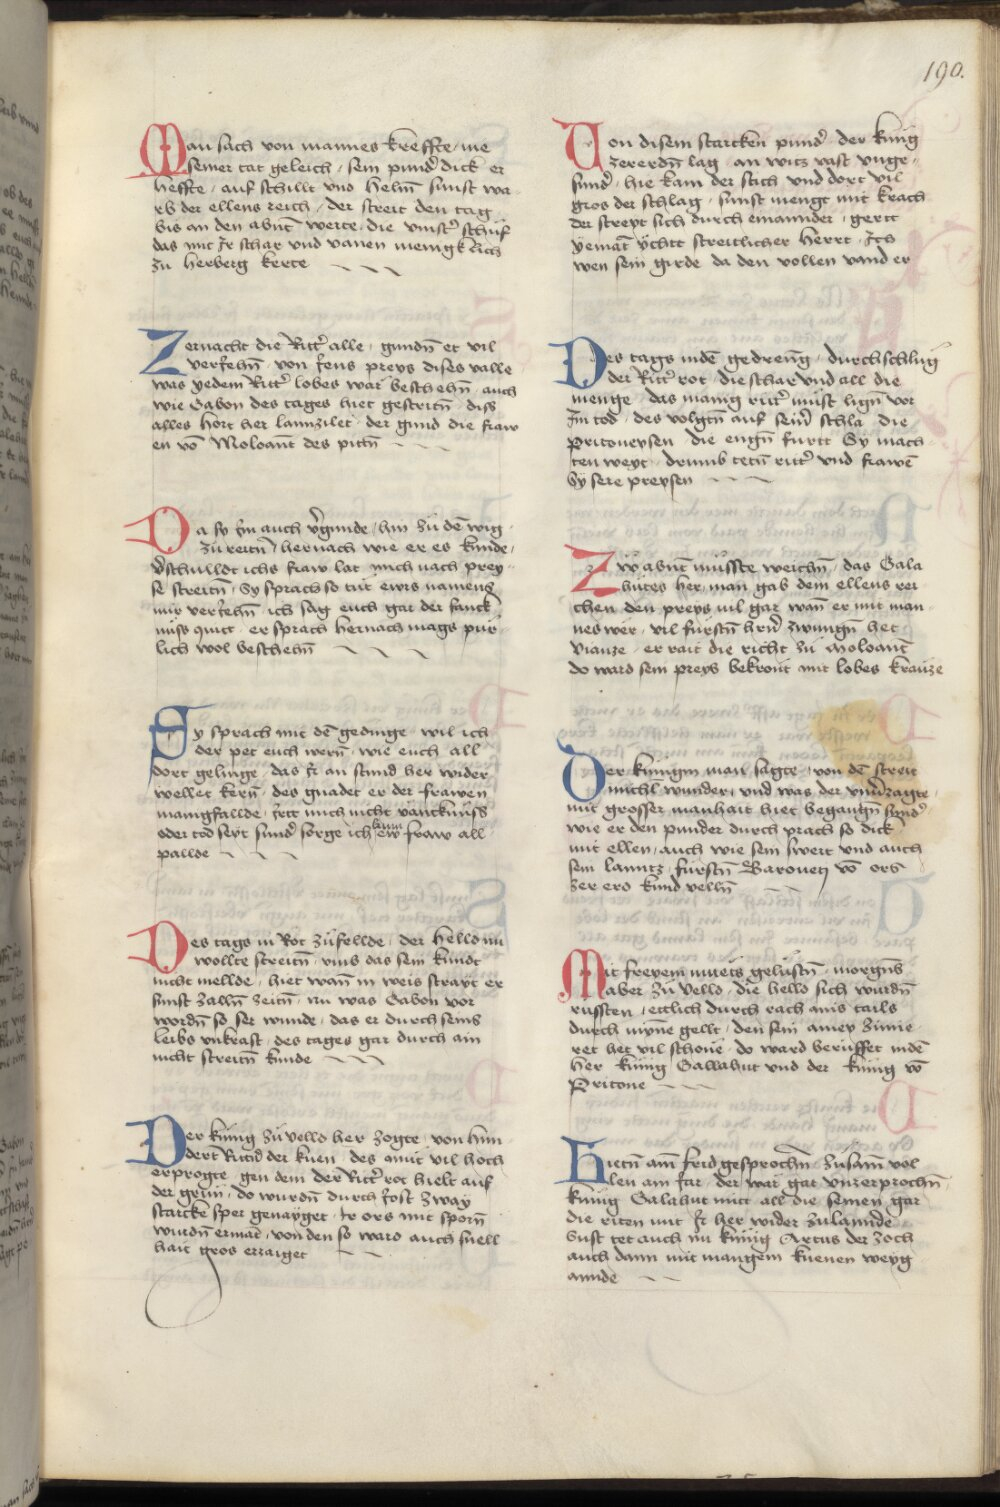 190.
Man sach von mannes kreffte / nie
seiner tat geleich / sein pund' dick er
heffte / auf schillt vnd helm sunst wa
rb der ellens reich / der streit den tag
bis an den abnt werte / die vinst' schuf
das mit Ir schar vnd vanen menigklich
zu herberg kerte
Zernacht die Ritt' alle / gundn et vil
veriehn / von Iens preys dises valle
was yedem Ritt' lobes war beschehn / auch
wie Gabon des tages hiet gestritn / diss
alles hort her lannzilet / der gund die fraw
en vō Moloant des pittn
Da sy im auch v'gunde / hin zu dē wig
zu reitn / hernach wie er es kunde /
v'schulldt ichs fraw lat mich nach prey
se streitn / Sy sprach so tut ewrs namens
mir veriehn / ich sag euch gar der fanck
nuss quit / er sprach hernach mags pür
lich wol beschehn
Sy sprach mit dē gedinge / wil ich
der pet euch wern / wie euch all
dort gelinge / das Ir an stund her wider
wellet kern / des gnadet er der frawen
manigfallde / Irrt mich nicht vancknuss
oder tod seyt sund' sorge ich kum ew fraw all
pallde
Des tags in Rot zufellde / der helld nu
wollte streitn / vmb das sein kundt
nicht mellde / hiet wann in weis strayt er
sunst zalln zeitn / nu was Gabon vor
wordn so ser wunde / das er durch seins
leibs vnkrafft / des tages gar durch ain
nicht streitn kunde
Der kunig zu velld her zogte / von hun
dert Rittn der kuen / des amit vil hoch
erprogte / gen dem der Ritt' rot hielt auf
der grun / do wurdn durch Iost zway
starcke sper genayget / Ir ors mit sporn
wurdn ermāt / von den so ward auch snell
hait gros erzaiget
Von disem starcken pund' der kunig
zererdn lag / an witz vast vnge
sund' / hie kam der stich vnd dort vil
gros der schlag / sunst menge mit krach
der streyt sich durch einannder / gertt
yemāt ychtt streitlicher herrt / Ich
wen sein girde da den vollen vand er
Des tags indē gedreng / durchschlug
der Ritt' rot / die schar vnd all die
menge / das manig ritt' must lign vor
Im tod / des volgtn auf sein' schla die
Pritoneysen / die engn furtt Sy mach
ten weyt / drumb tetn ritt' vnd frawē
Sy sere preysen
Zw abnt müsste weichn / das Gala
hutes her / man gab dem ellens rei
chen den preys vil gar wann er mit man
nes wer / vil fürstn hrn' zwungn het
vianze / er rait die richt zu Moloant
do ward sein preys bekront mit lobes krantze
Der kunigin man sagte / von dē streit
michl wunder / vnd was der vnv'zagte
mit grosser manhait hiet begangn sund'
wie er den punder durch prach so dick
mit ellen / auch wie sein swert vnd auch
sein lanntz / fürstn Baroney vō ors
zer erd kund velln
Mit freyem muets gelustn / morgns
aber zu velld / die helld sich wurdn
russten / ettlich durch rach anis tails
durch mynne gellt / den sein amey zimie
ret het vil schone / do ward berüffet indē
her kunig Gallahut vnd der kunig vō
Pritone
Hietn ain frid gesprochn / zusam vol
len ain Iar / der war gar vnzerprochn /
kunig Galahut mit all die seinen gar
die riten mit Ir her wider zulannde
Sust tet auch nu kunig Artus der zoch
auch dann mit mangem kuenen weyg
annde